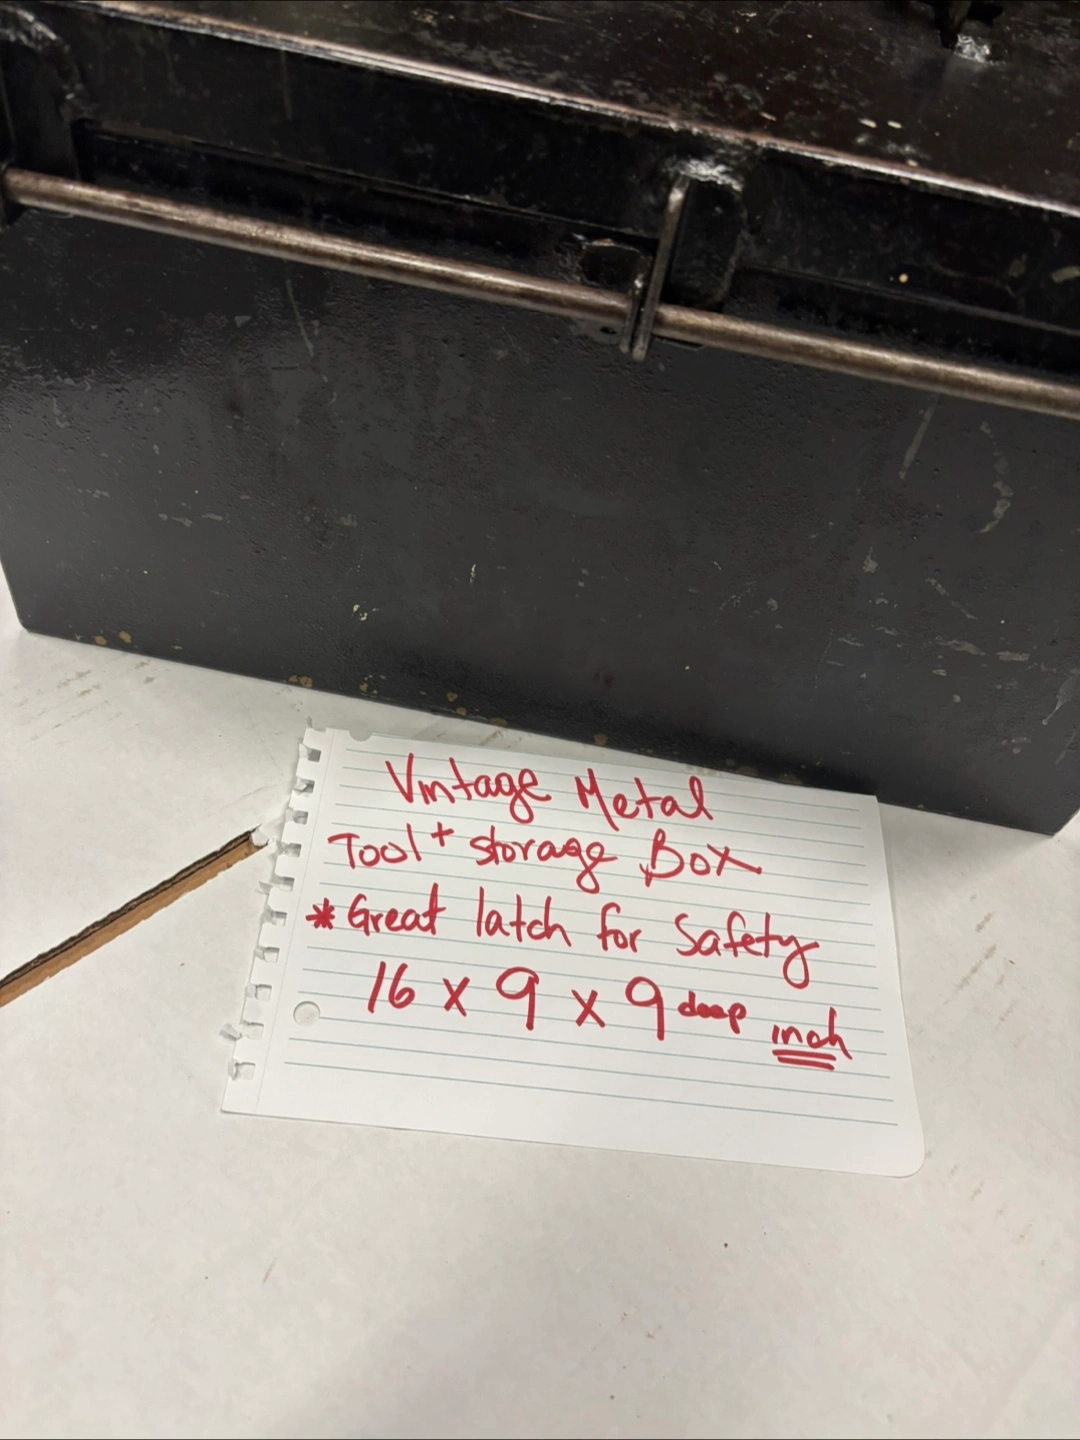 Vintage Metal
Tool + storage Box
* Great latch for Safety
16 x 9 x 9 deep inch